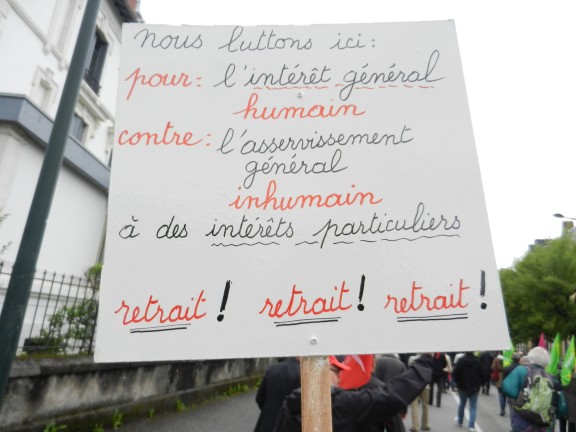 nous luttons ici :
pour : l'intérêt général
humain
contre : l'asservissement
général
inhumain
à des intérêts particuliers
retrait ! retrait ! retrait !